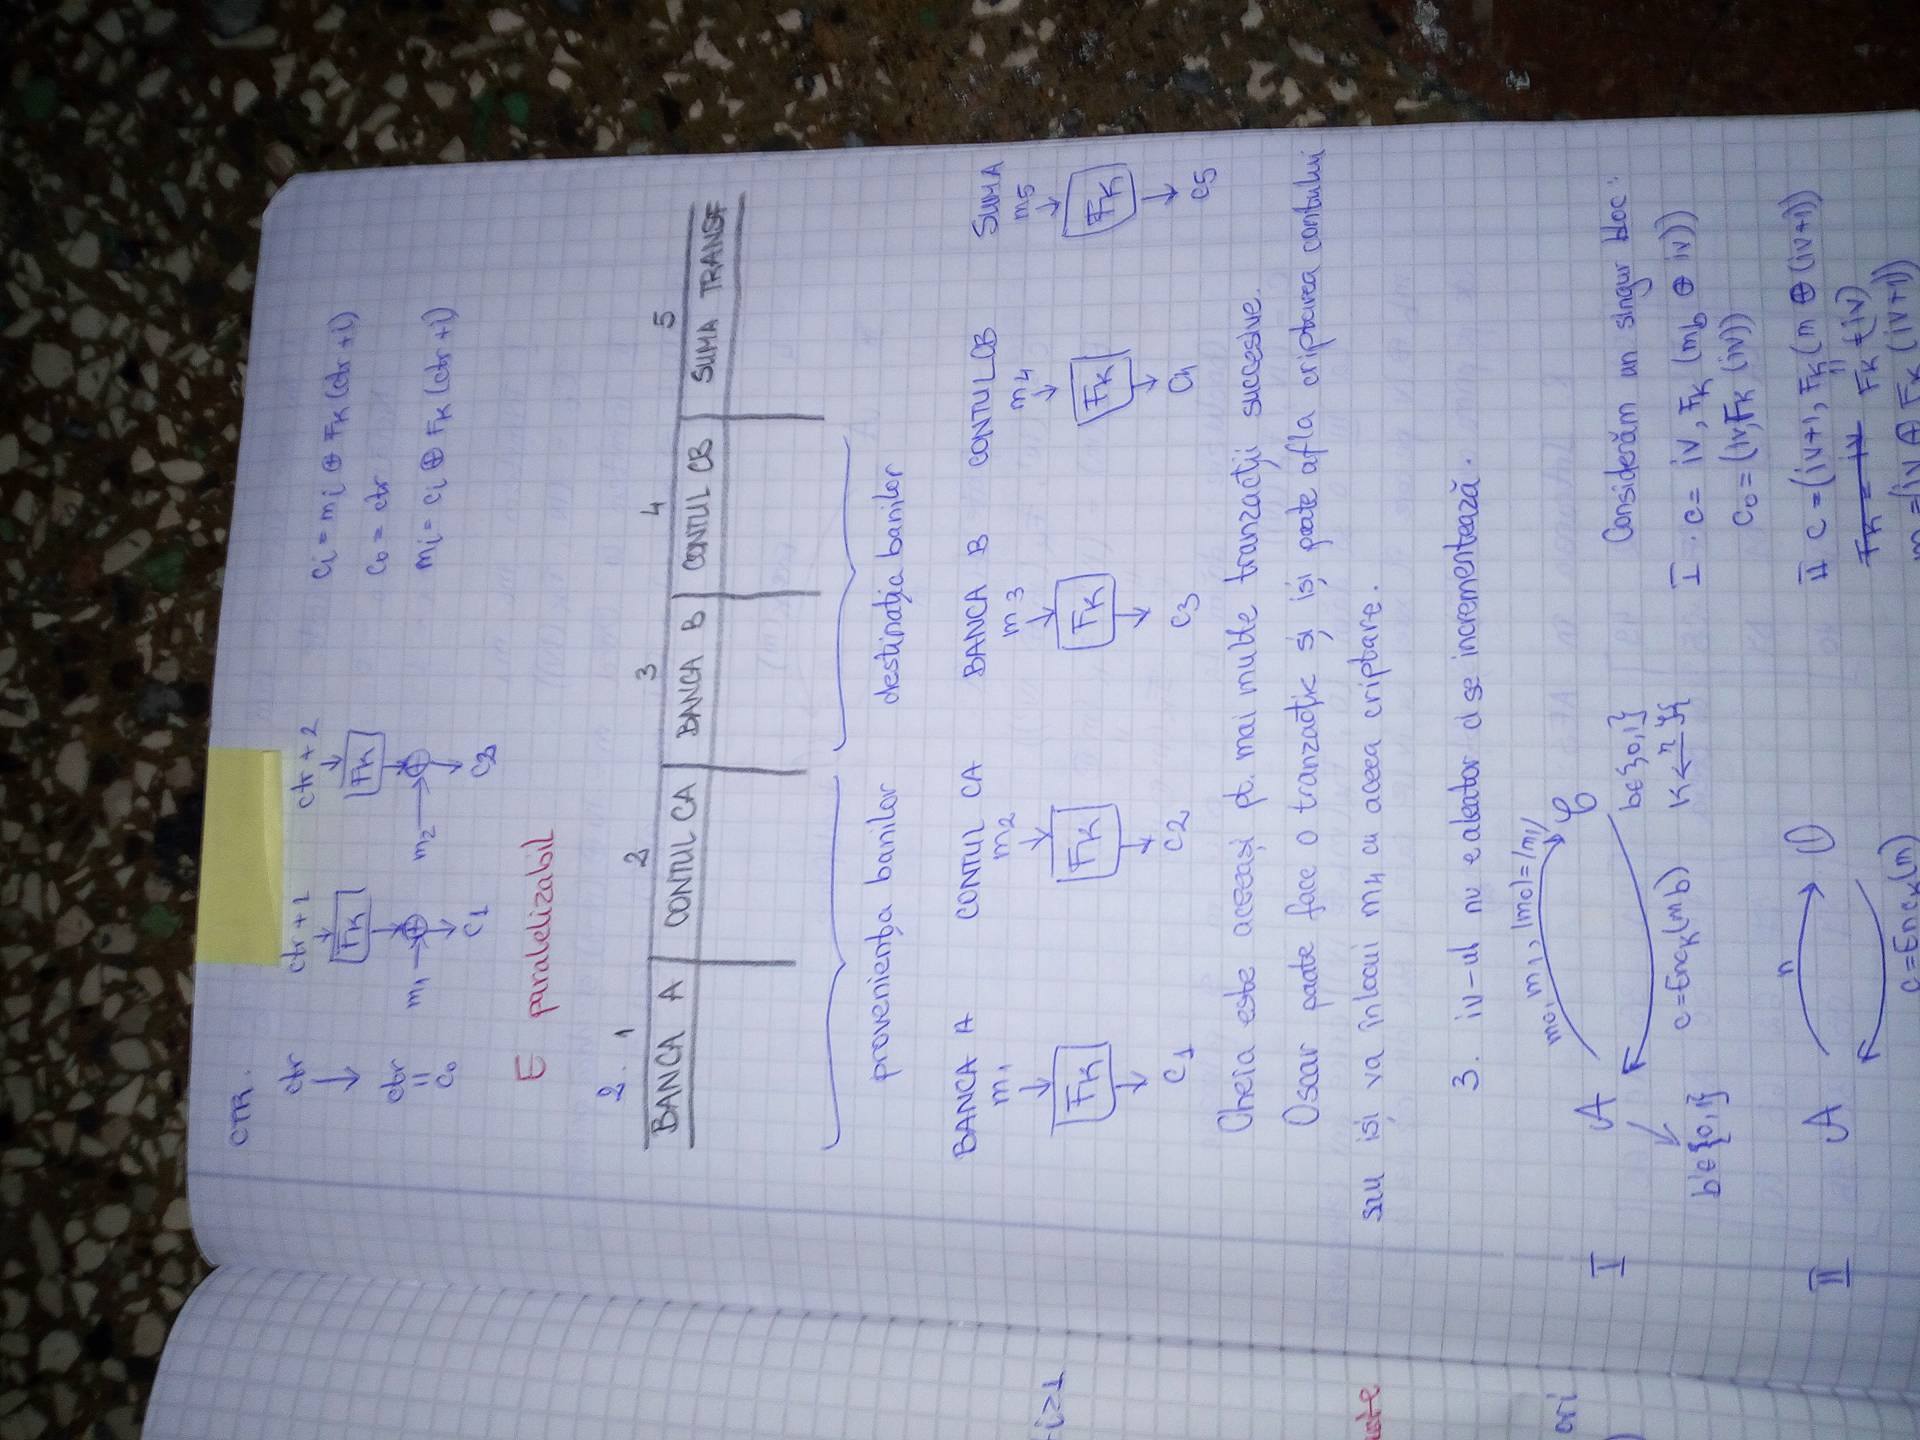 CTR.
ctr ctr+1 ctr+2
FK FK
ctr m1 ⊕ m2 ⊕
=
c0 c1 c2
ci = mi ⊕ FK (ctr+i)
c0 = ctr
mi = ci ⊕ FK (ctr+i)
E paralelizabil
2. 1 2 3 4 5
BANCA A CONTUL CA BANCA B CONTUL CB SUMA TRANSF
proveniența banilor destinația banilor
BANCA A CONTUL CA BANCA B CONTUL CB SUMA
m1 m2 m3 m4 m5
FK FK FK FK FK
c1 c2 c3 c4 c5
Cheia este aceeași pt. mai multe tranzacții succesive.
Oscar poate face o tranzacție și își poate afla criptarea contului
său își va înlocui m4 cu aceea criptare.
3. iv-ul nu e aleator ci se incrementează.
I A m0, m1, |m0|=|m1| C
b∈{0,1}
K ←R K
c=EncK(mb)
b'∈{0,1}
Considerăm un singur bloc:
I. c= iv, FK (mb ⊕ iv))
c0 = (iv, FK (iv))
II A O
c=EncK(m)
II c = (iv+1, FK (m ⊕ (iv+1))
=
FK = iv FK (iv)
-i≥1
ori